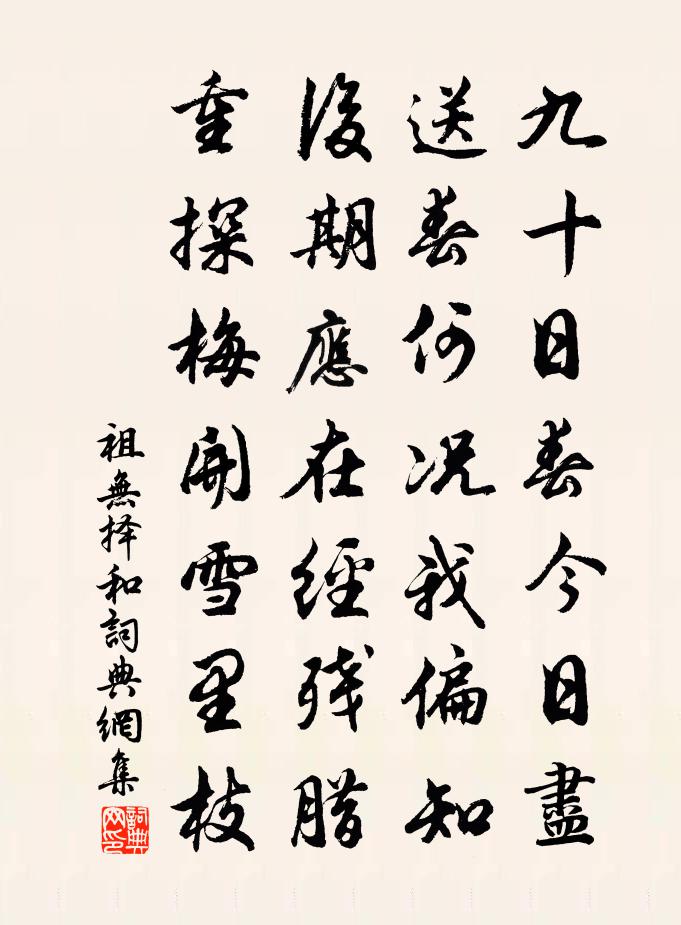 九十日春今日盡
送春何況我偏知
後期應在經残腊
重探梅開雪里枝
祖無择和詞典網集
詞典網印